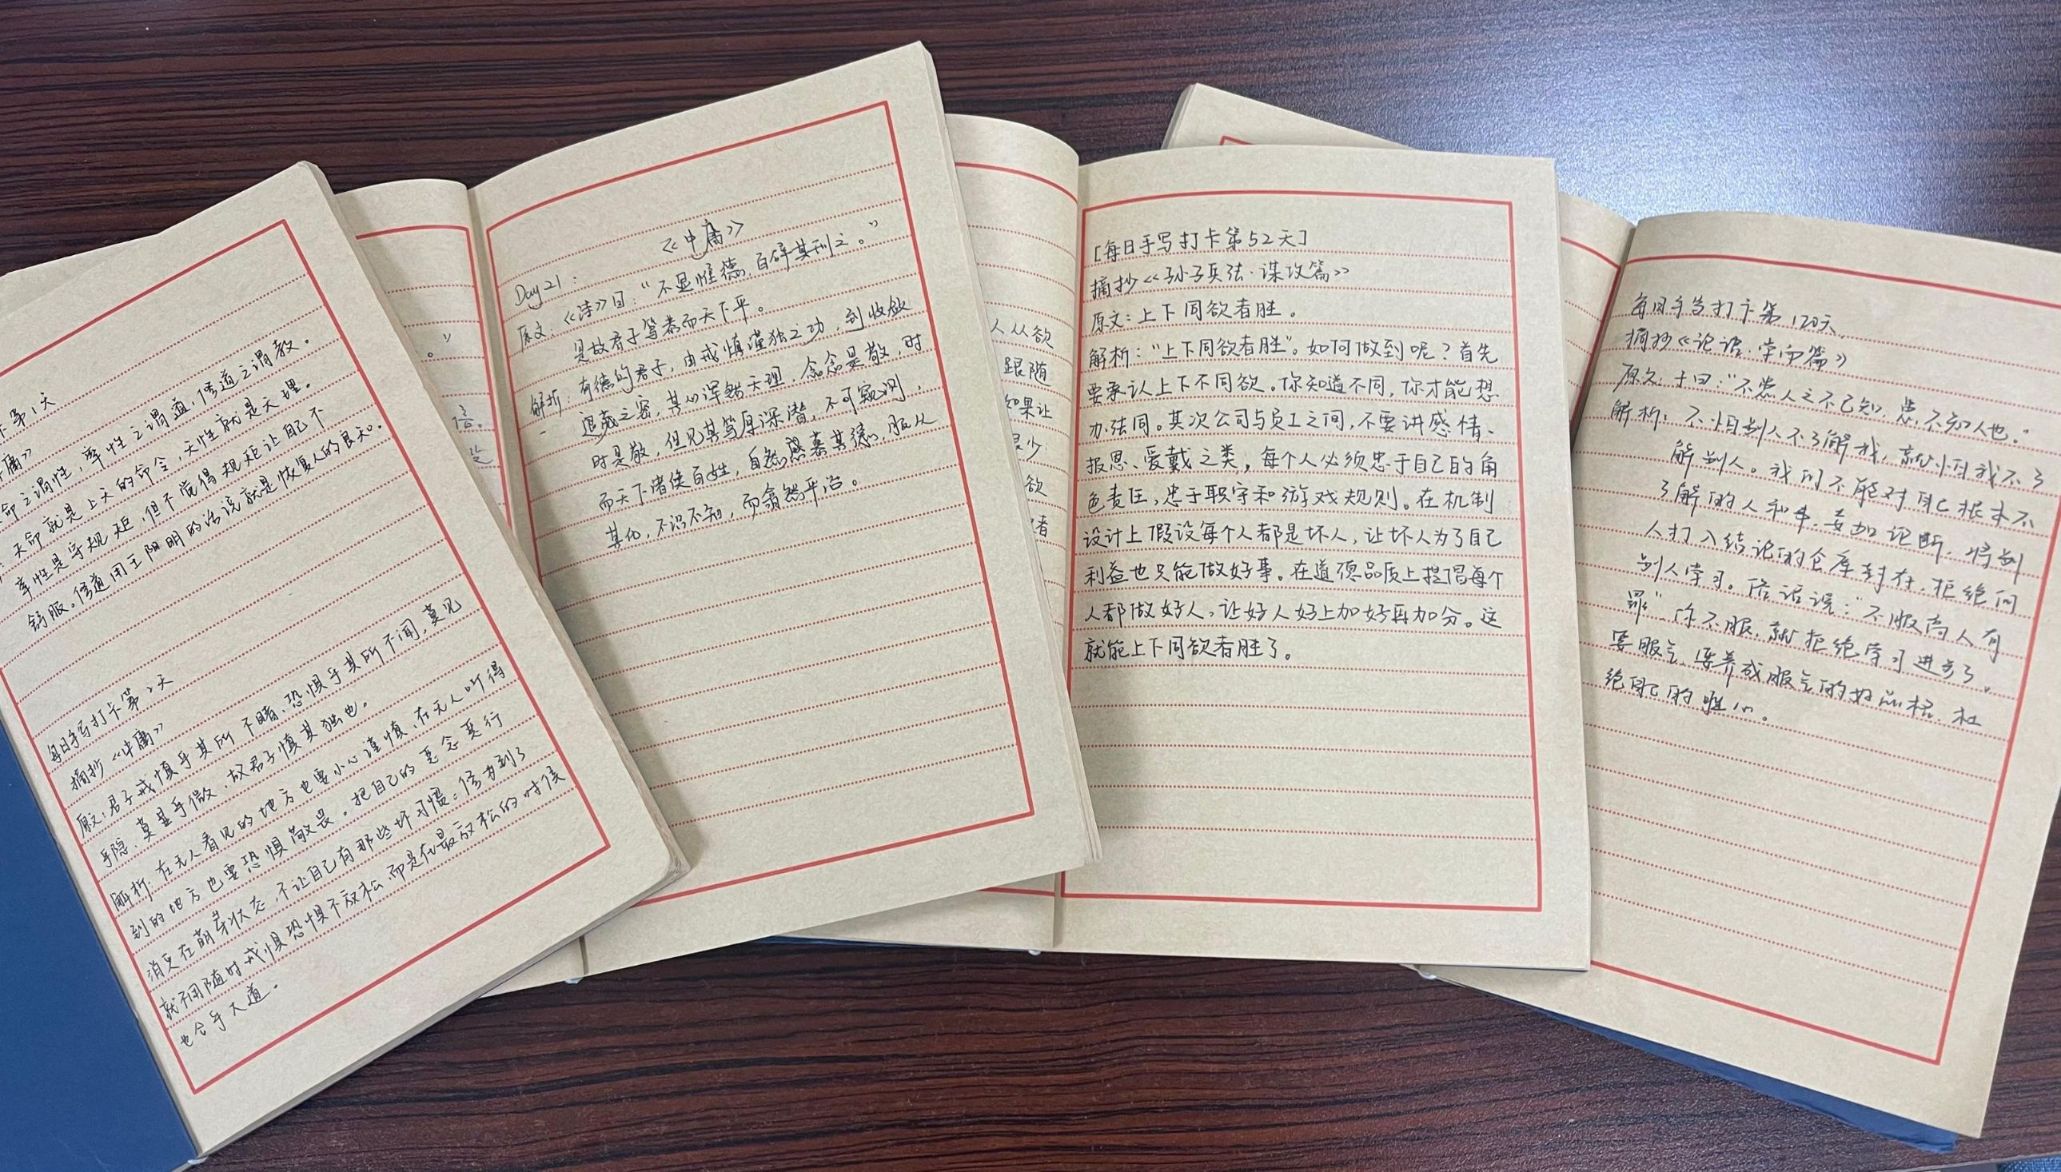 卡第1天
庸》
命之谓性，率性之谓道，修道之谓教。
天命就是上天的命令，天性就是天理。
率性是守规矩，但不觉得规矩让自己不
舒服。修道用王阳明的话说就是恢复人的良知。
每日手写打卡第2天
摘抄《中庸》
原文：君子戒慎乎其所不睹，恐惧乎其所不闻，莫见
乎隐，莫显乎微，故君子慎其独也。
解析：在无人看见的地方也要小心谨慎，在无人听得
到的地方也要恐惧敬畏。把自己的恶念恶行
消灭在萌芽状态，不让自己有那些坏习惯。修为到了
就不用随时戒慎恐惧不放松，而是在最放松的时候
也合乎大道。
。”
信。
《中庸》
Day21：
原文：《诗》曰：“不显惟德，百辟其刑之。”
是故君子笃恭而天下平。
解析：有德的君子，由戒慎谨独之功，到收敛
退藏之密，其心浑然天理，念念是敬，时
时是敬，但见其笃厚深潜，不可窥测，
而天下诸侯百姓，自然感慕其德，服从
其化，不识不知，而翕然平治。
人从欲
跟随
如果让
很少
欲
者
[每日手写打卡第52天]
摘抄《孙子兵法·谋攻篇》
原文：上下同欲者胜。
解析：“上下同欲者胜”。如何做到呢？首先
要承认上下不同欲。你知道不同，你才能想
办法同。其次公司与员工之间，不要讲感情、
报恩、爱戴之类，每个人必须忠于自己的角
色责任，忠于职守和游戏规则。在机制
设计上假设每个人都是坏人，让坏人为了自己
利益也只能做好事。在道德品质上提倡每个
人都做好人，让好人好上加好再加分。这
就能上下同欲者胜了。
每日手写打卡第120天
摘抄《论语·学而篇》
原文：子曰：“不患人之不己知，患不知人也。”
解析：不怕别人不了解我，就怕我不了
解别人。我们不能对自己根本不
了解的人和事，妄加论断，将别
人打入结论的仓库封存，拒绝向
别人学习。俗话说：“不服高人有
罪”你不服，就拒绝学习进步了。
要服气，要养成服气的好品格，杜
绝自己的胜心。